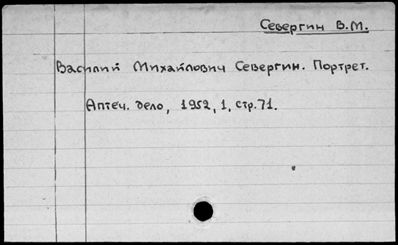 Севергин В.М.
Василий Михайлович Севергин. Портрет.
Аптеч. дело, 1952, 1, стр. 71.